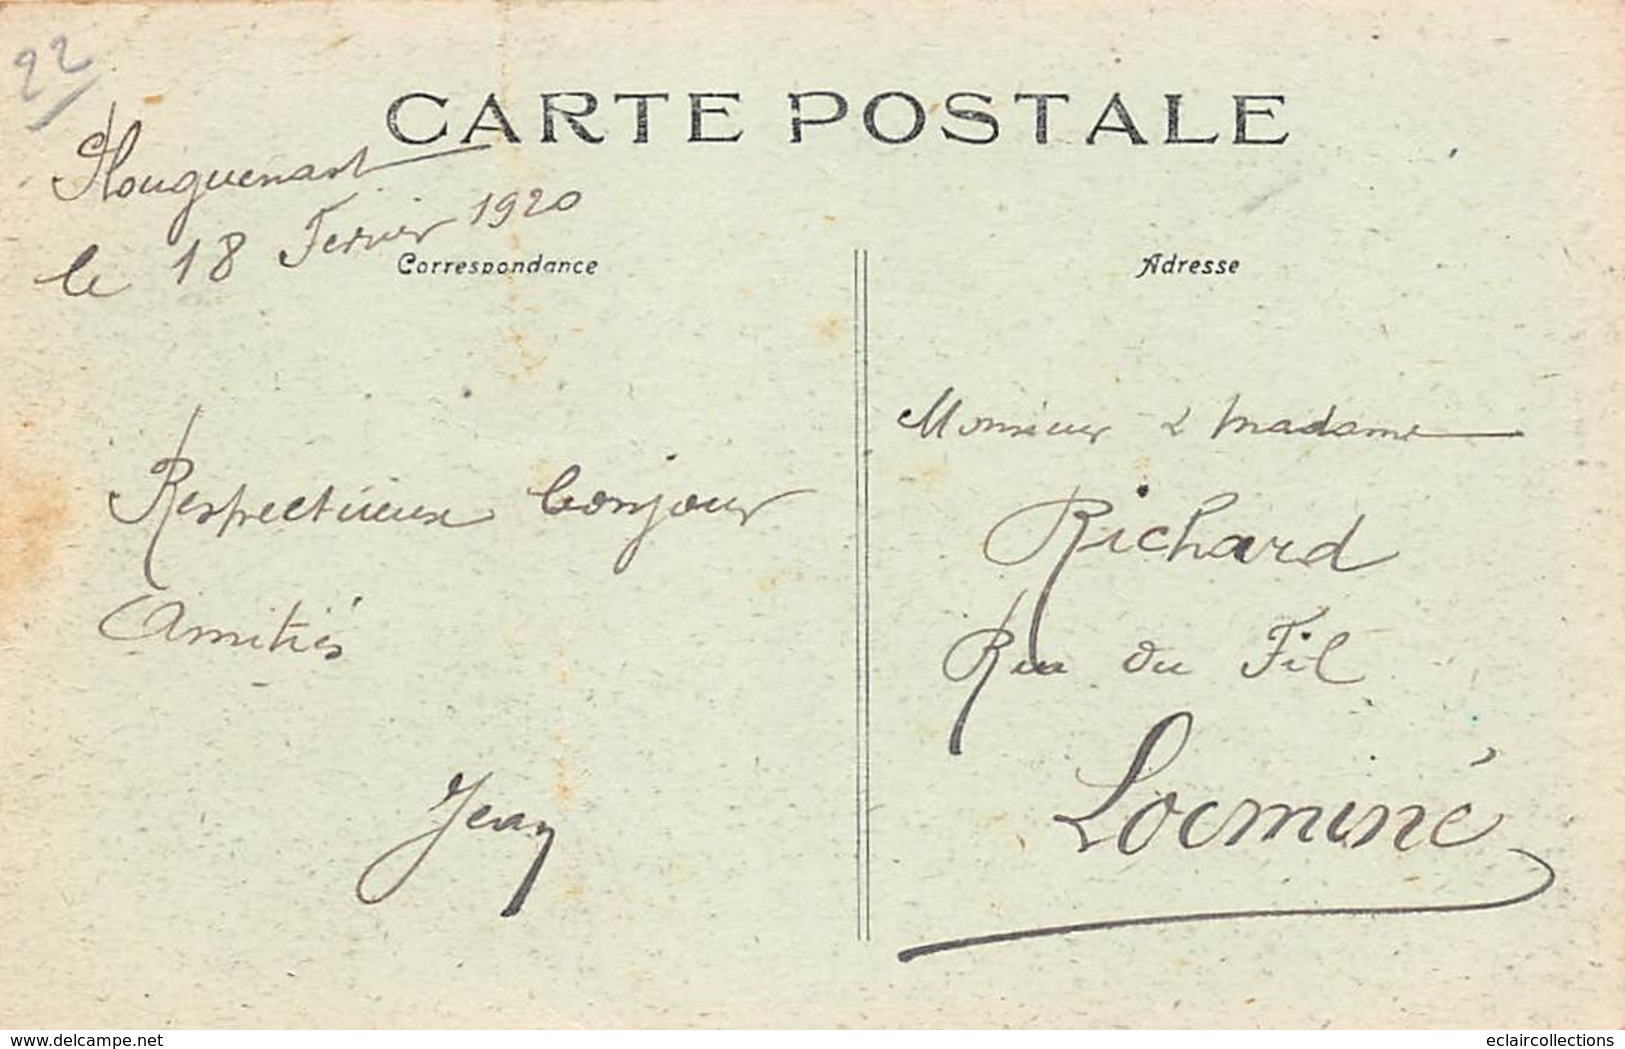 22
CARTE POSTALE
Plouguenast
le 18 Fevrier 1920
Correspondance
Adresse
Respectueux bonjour
Amitiés
Jean
Monsieur & Madame
Richard
Rue du Fil
Locminé
www.delcampe.net
eclaircollections